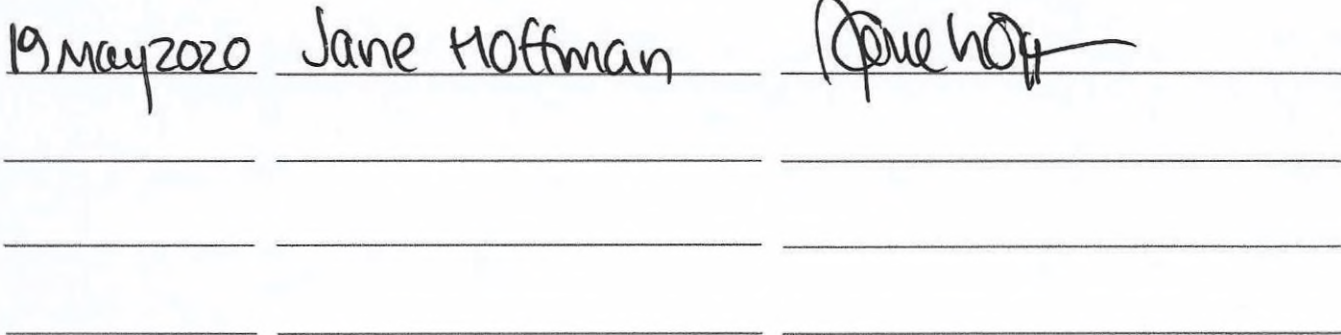 19 May 2020 Jane Hoffman Jane Hoff